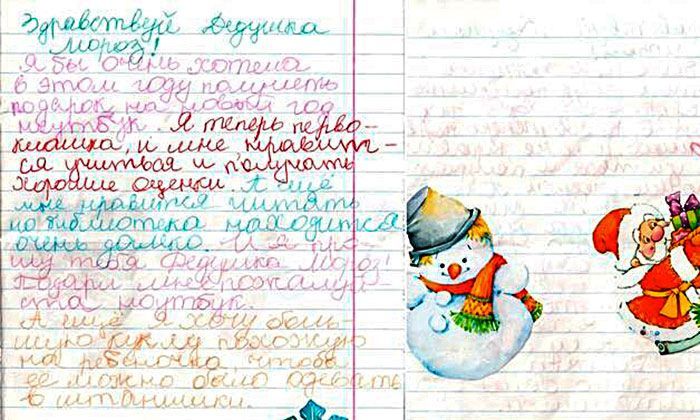 Здравствуй Дедушка
Мороз!
Я бы очень хотела
в этом году получить
подарок на новый год
ноутбук. Я теперь перво-
клашка, и мне нравить-
ся учиться и получать
хорошие оценки. А ещё
мне нравится читать
но библиотека находится
очень далеко. И я про-
шу тебя Дедушка Мороз!
Подари мне пожалуй-
ста ноутбук.
А ещё я хочу боль-
шую куклу похожую
на ребёночка, чтобы
её можно было одевать
в штанишки.